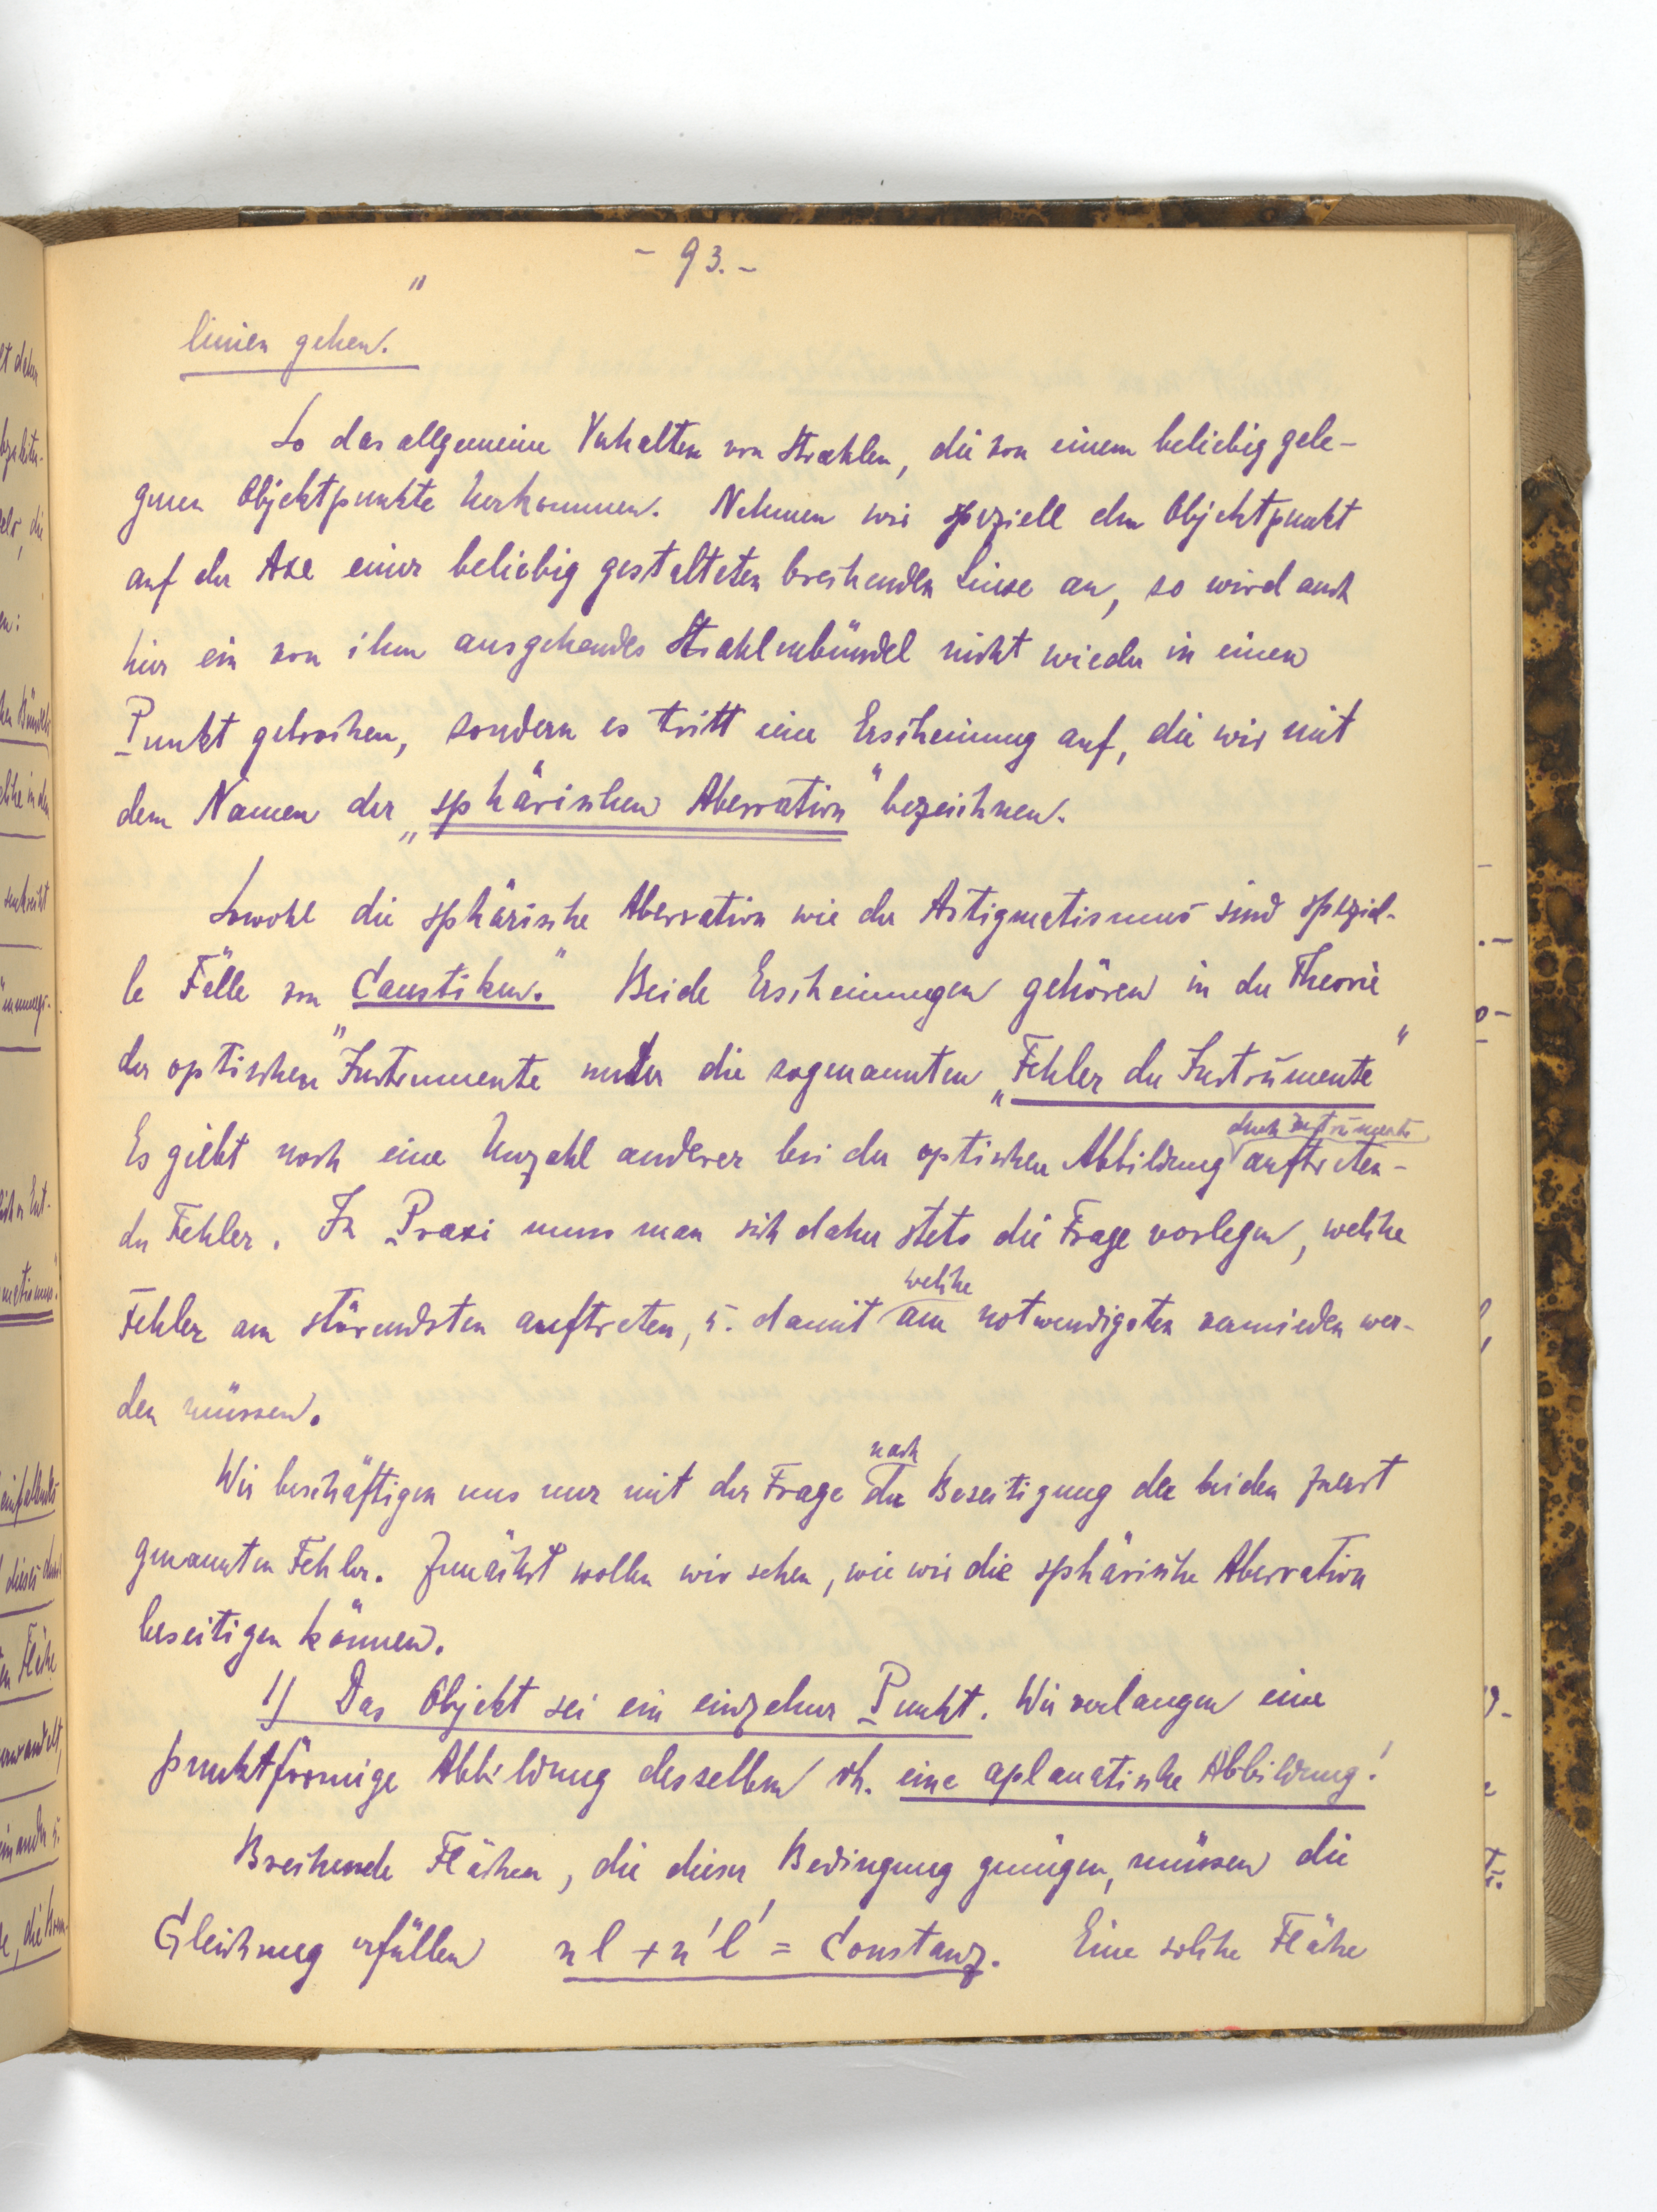 - 93. -
linien gehen."
So das allgemeine Verhalten von Strahlen, die von einem beliebig gele-
genen Objektpunkte herkommen. Nehmen wir speziell den Objektpunkt
auf der Axe einer beliebig gestalteten brechenden Linse an, so wird auch
hier ein von ihm ausgehendes Strahlenbündel nicht wieder in einen
Punkt gebrochen, sondern es tritt eine Erscheinung auf, die wir mit
dem Namen der „sphärischen Aberration" bezeichnen.
Sowohl die sphärische Aberration wie der Astigmatismus sind speziel-
le Fälle von „Caustiken." Beide Erscheinungen gehören in der Theorie
der optischen Instrumente unter die sogenannten „Fehler der Instrumente"
Es giebt noch eine Unzahl anderer bei der optischen Abbildung durch Instrumente auftreten-
der Fehler. In Praxi muss man sich daher stets die Frage vorlegen, welche
Fehler am störendsten auftreten, u. damit welche am notwendigsten vermieden wer-
den müssen.
Wir beschäftigen uns nur mit der Frage nach der Beseitigung der beiden zuerst
genannten Fehler. Zunächst wollen wir sehen, wie wir die sphärische Aberration
beseitigen können.
1) Das Objekt sei ein einzelner Punkt. Wir verlangen eine
punktförmige Abbildung desselben dh. eine aplanatische Abbildung!
Brechende Flächen, die dieser Bedingung genügen, müssen die
Gleichung erfüllen nl + n'l' = Constanz. Eine solche Fläche